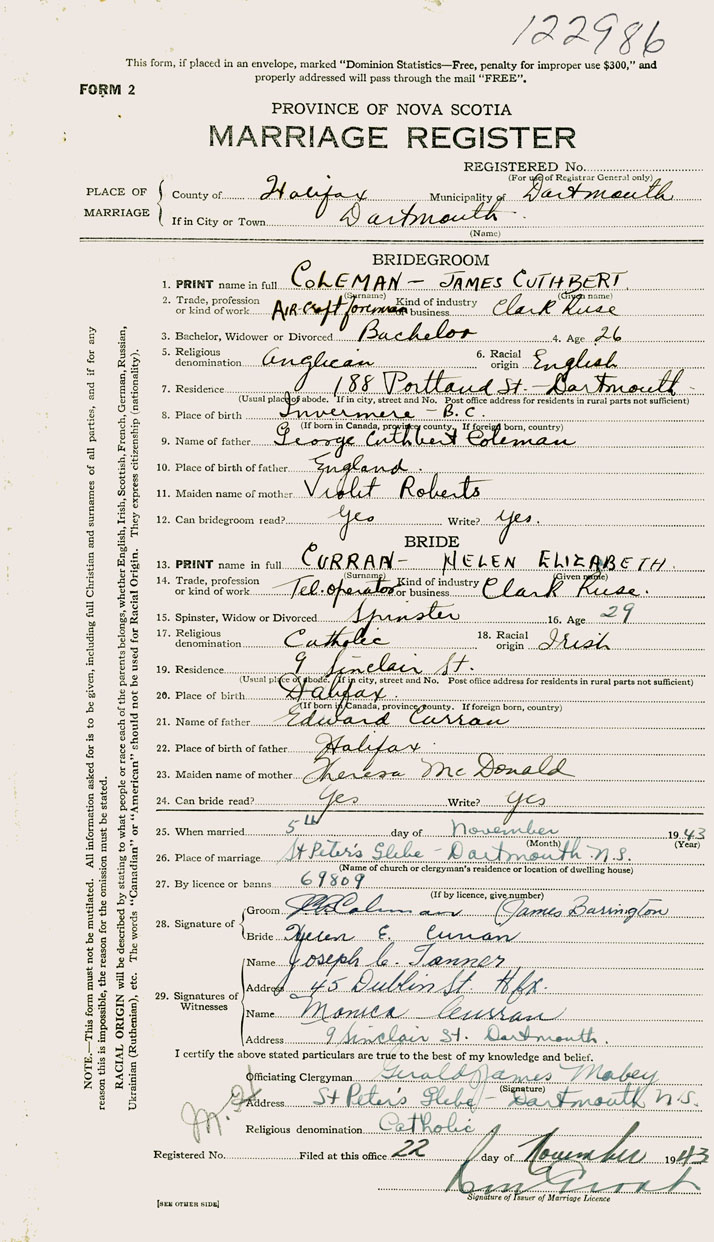 122986
This form, if placed in an envelope, marked "Dominion Statistics—Free, penalty for improper use $300," and
properly addressed will pass through the mail "FREE".
FORM 2
PROVINCE OF NOVA SCOTIA
MARRIAGE REGISTER
REGISTERED No.
(For use of Registrar General only)
PLACE OF MARRIAGE
County of Halifax Municipality of Dartmouth
If in City or Town Dartmouth
(Name)
BRIDEGROOM
1. PRINT name in full COLEMAN — JAMES CUTHBERT
(Surname) (Given name)
2. Trade, profession or kind of work Air-Craft foreman Kind of industry or business Clark Ruse
3. Bachelor, Widower or Divorced Bachelor 4. Age 26
5. Religious denomination Anglican 6. Racial origin English
7. Residence 188 Portland St. — Dartmouth
(Usual place of abode. If in city, street and No. Post office address for residents in rural parts not sufficient)
8. Place of birth Invermere — B.C.
(If born in Canada, province county. If foreign born, country)
9. Name of father George Cuthbert Coleman
10. Place of birth of father England.
11. Maiden name of mother Violet Roberts
12. Can bridegroom read? Yes Write? yes.
BRIDE
13. PRINT name in full CURRAN — HELEN ELIZABETH.
(Surname) (Given name)
14. Trade, profession or kind of work Tel. operator Kind of industry or business Clark Ruse.
15. Spinster, Widow or Divorced Spinster 16. Age 29
17. Religious denomination Catholic 18. Racial origin Irish
19. Residence 9 Sinclair St.
(Usual place of abode. If in city, street and No. Post office address for residents in rural parts not sufficient)
20. Place of birth Halifax.
(If born in Canada, province county. If foreign born, country)
21. Name of father Edward Curran
22. Place of birth of father Halifax.
23. Maiden name of mother Theresa McDonald
24. Can bride read? Yes Write? yes
25. When married 5th day of November 1943
(Month) (Year)
26. Place of marriage St Peter's Glebe — Dartmouth N.S.
(Name of church or clergyman's residence or location of dwelling house)
27. By licence or banns 69809
(If by licence, give number)
28. Signature of
Groom Coleman (James Barington
Bride Helen E. Curran
29. Signatures of Witnesses
Name Joseph C. Tanner
Address 45 Dublin St Hfx.
Name Monica Curran
Address 9 Sinclair St. Dartmouth.
I certify the above stated particulars are true to the best of my knowledge and belief.
Officiating Clergyman Gerald James Mabey
(Signature)
Address St Peter's Glebe — Dartmouth N.S.
Religious denomination Catholic
Registered No. Filed at this office 22 day of November 1943
Signature of Issuer of Marriage Licence
[SEE OTHER SIDE]
NOTE.—This form must not be mutilated. All information asked for is to be given, including full Christian and surnames of all parties, and if for any
reason this is impossible, the reason for the omission must be stated.
RACIAL ORIGIN will be described by stating to what people or race each of the parents belongs, whether English, Irish, Scottish, French, German, Russian,
Ukrainian (Ruthenian), etc. The words "Canadian" or "American" should not be used for Racial Origin. They express citizenship (nationality).